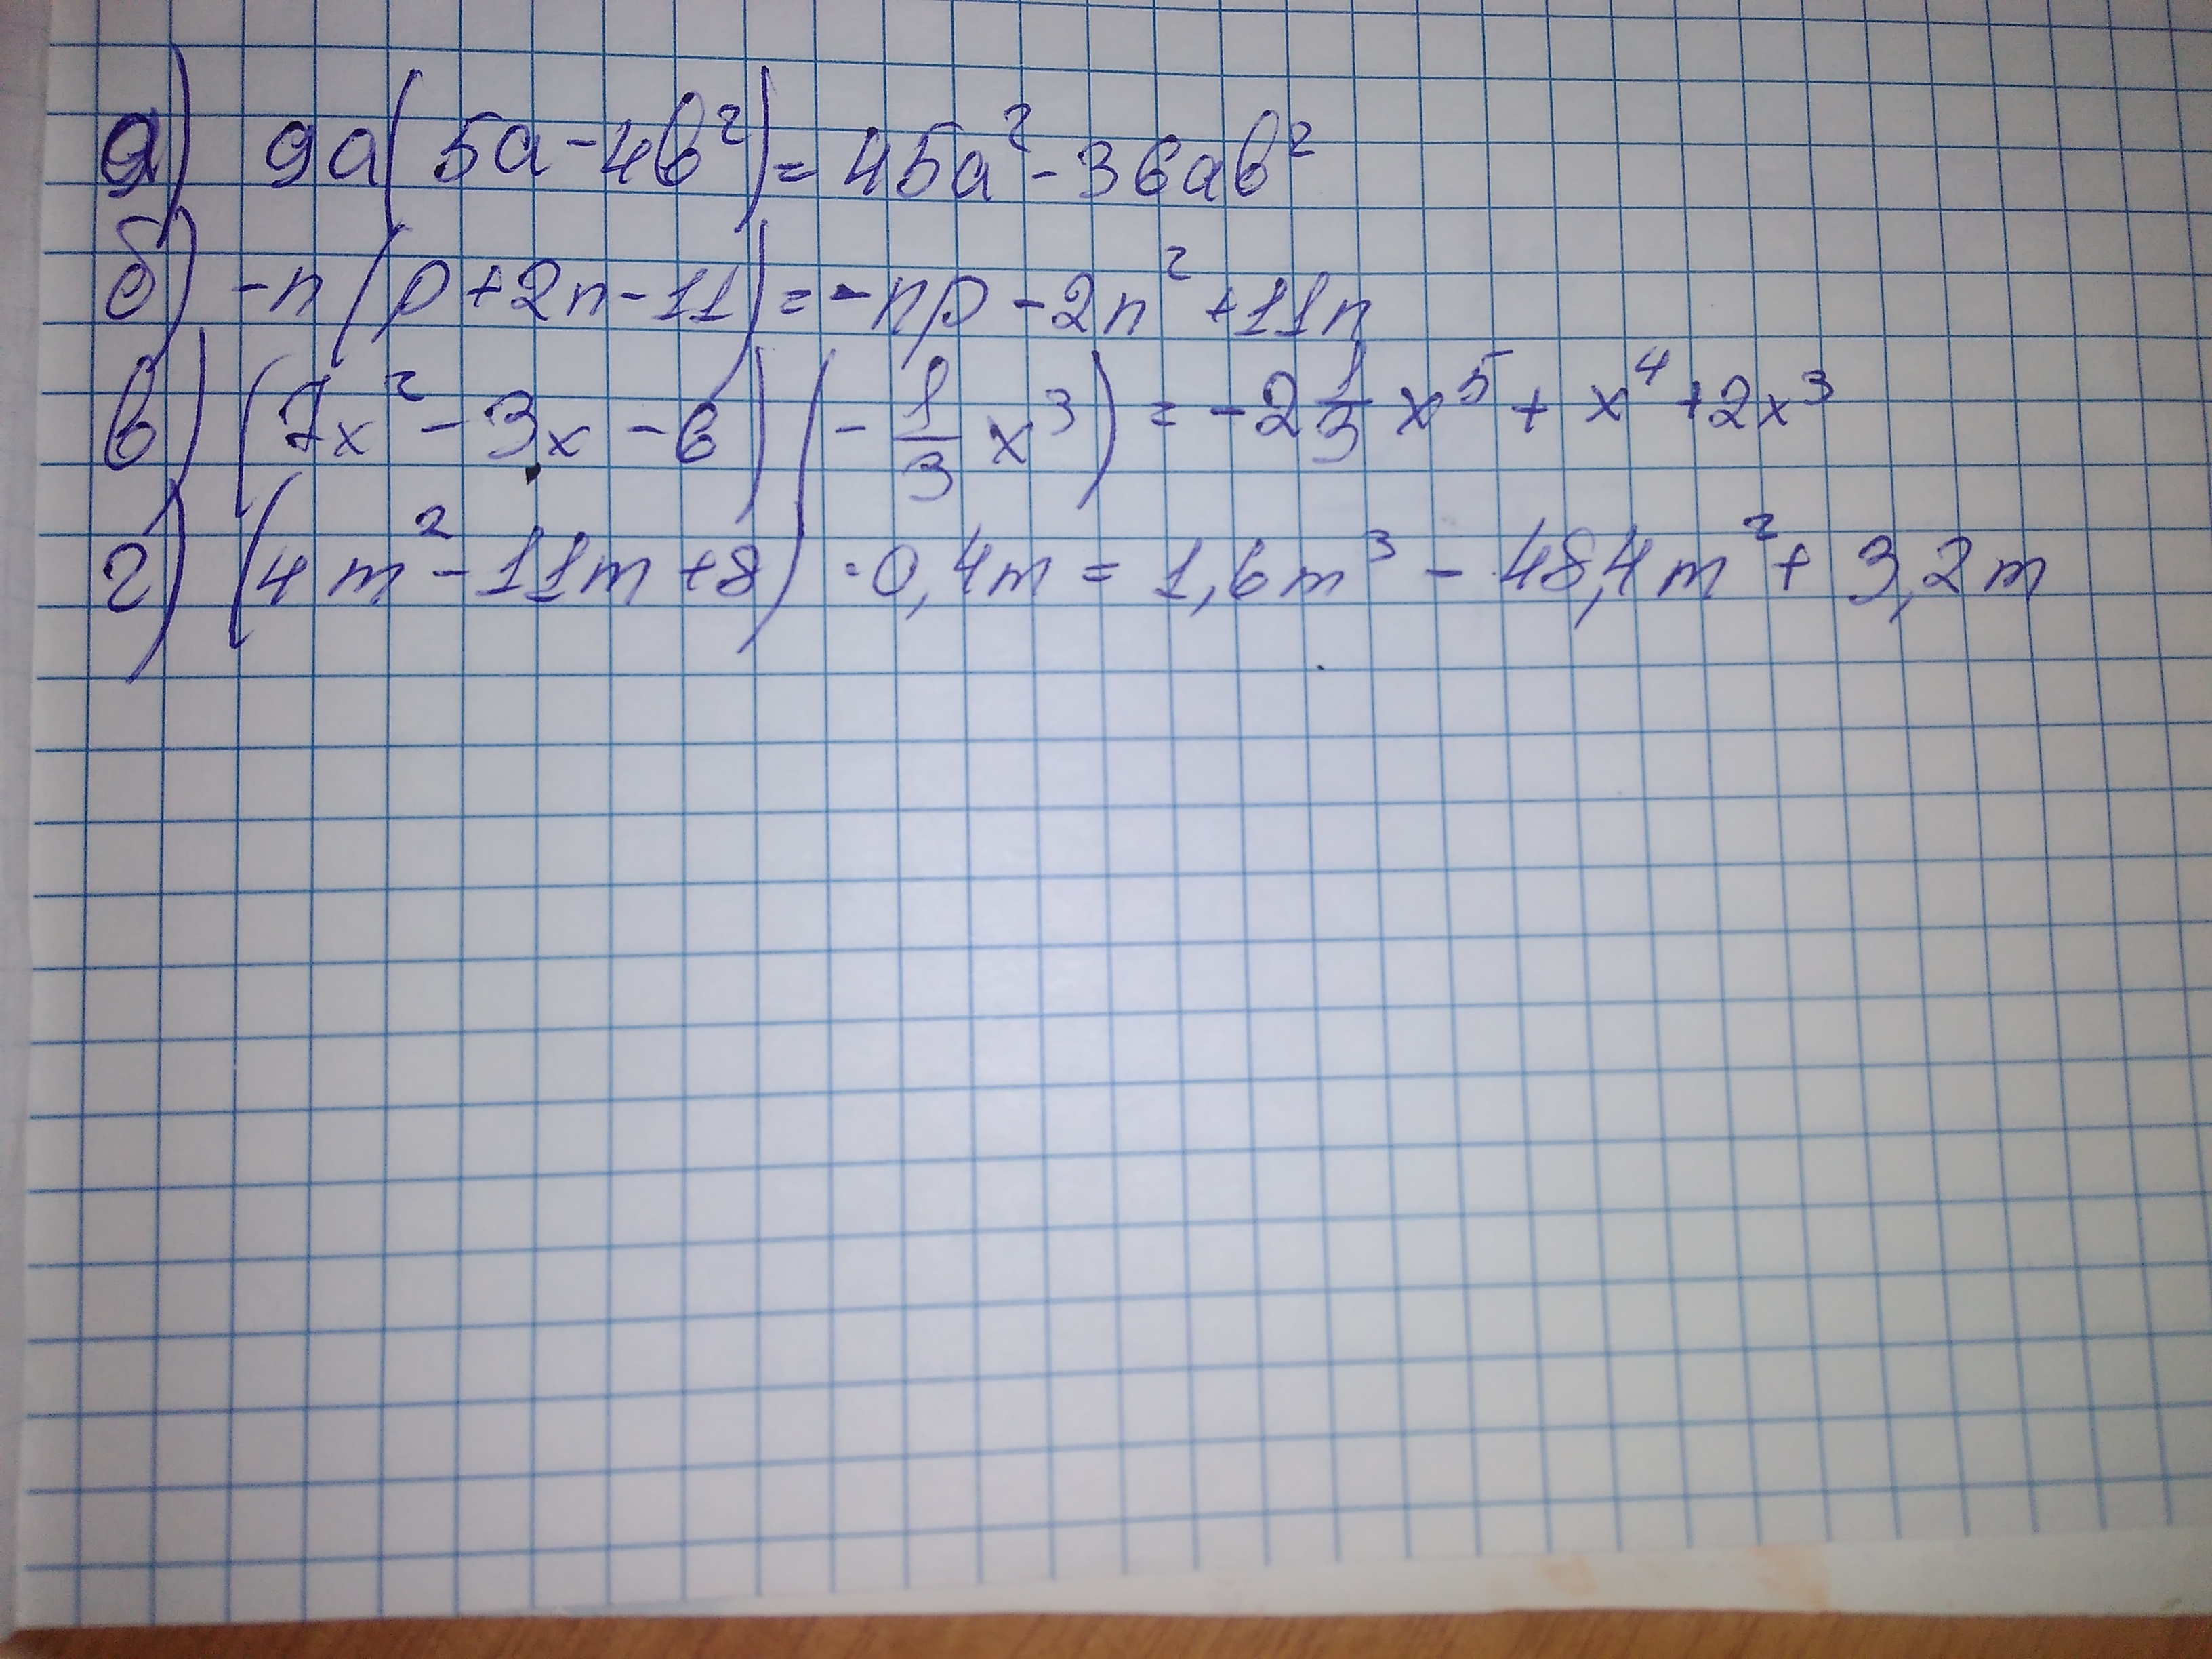 а) 9a(5a-4b²)=45a²-36ab²
б) -n(p+2n-11)=-np-2n²+11n
в) (7x²-3x-6)(-1/3 x³)=-2 1/3 x⁵+x⁴+2x³
г) (4m²-11m+8)·0,4m=1,6m³-48,4m²+3,2m